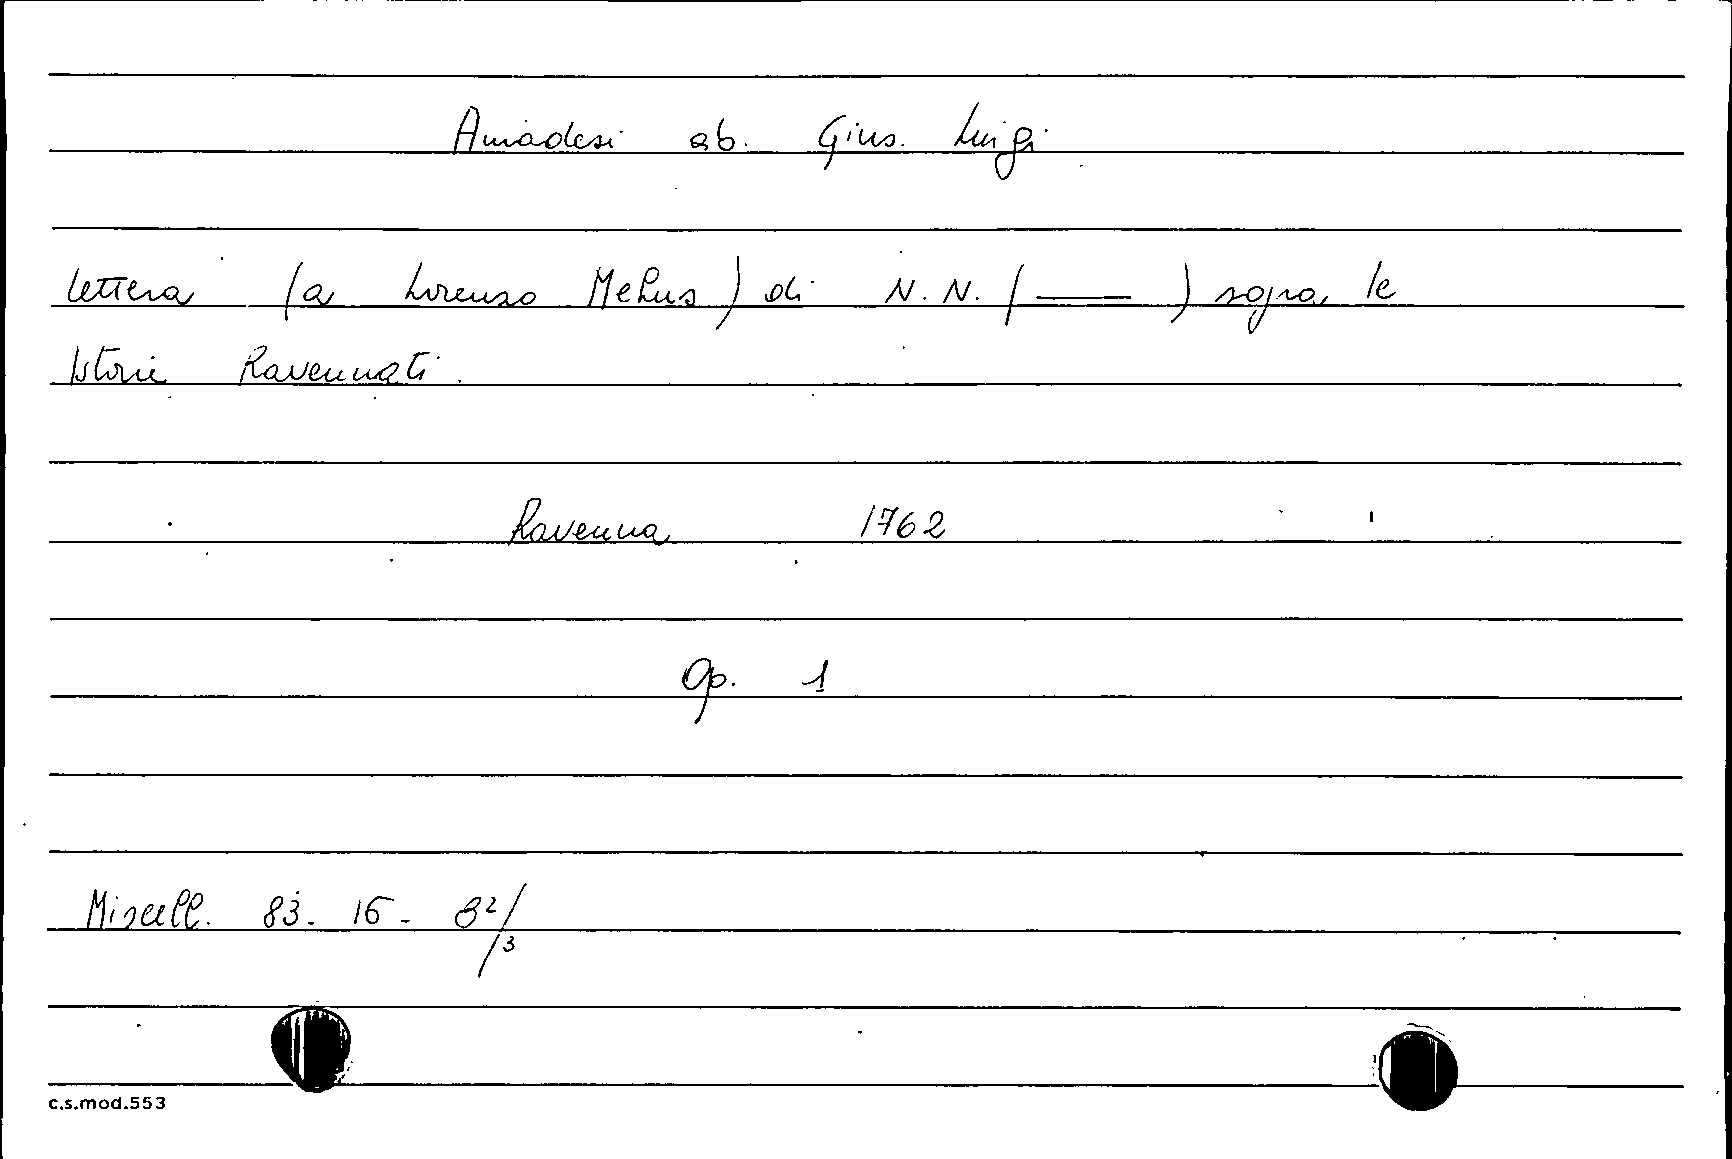 Amadesi ab. Gius. Luigi
lettera (a Lorenzo Mehus) di N.N. (——) sopra le
Istorie Ravennati.
Ravenna 1762
Op. 1
Miscell. 83. 16 - 8²/3
c.s.mod.553